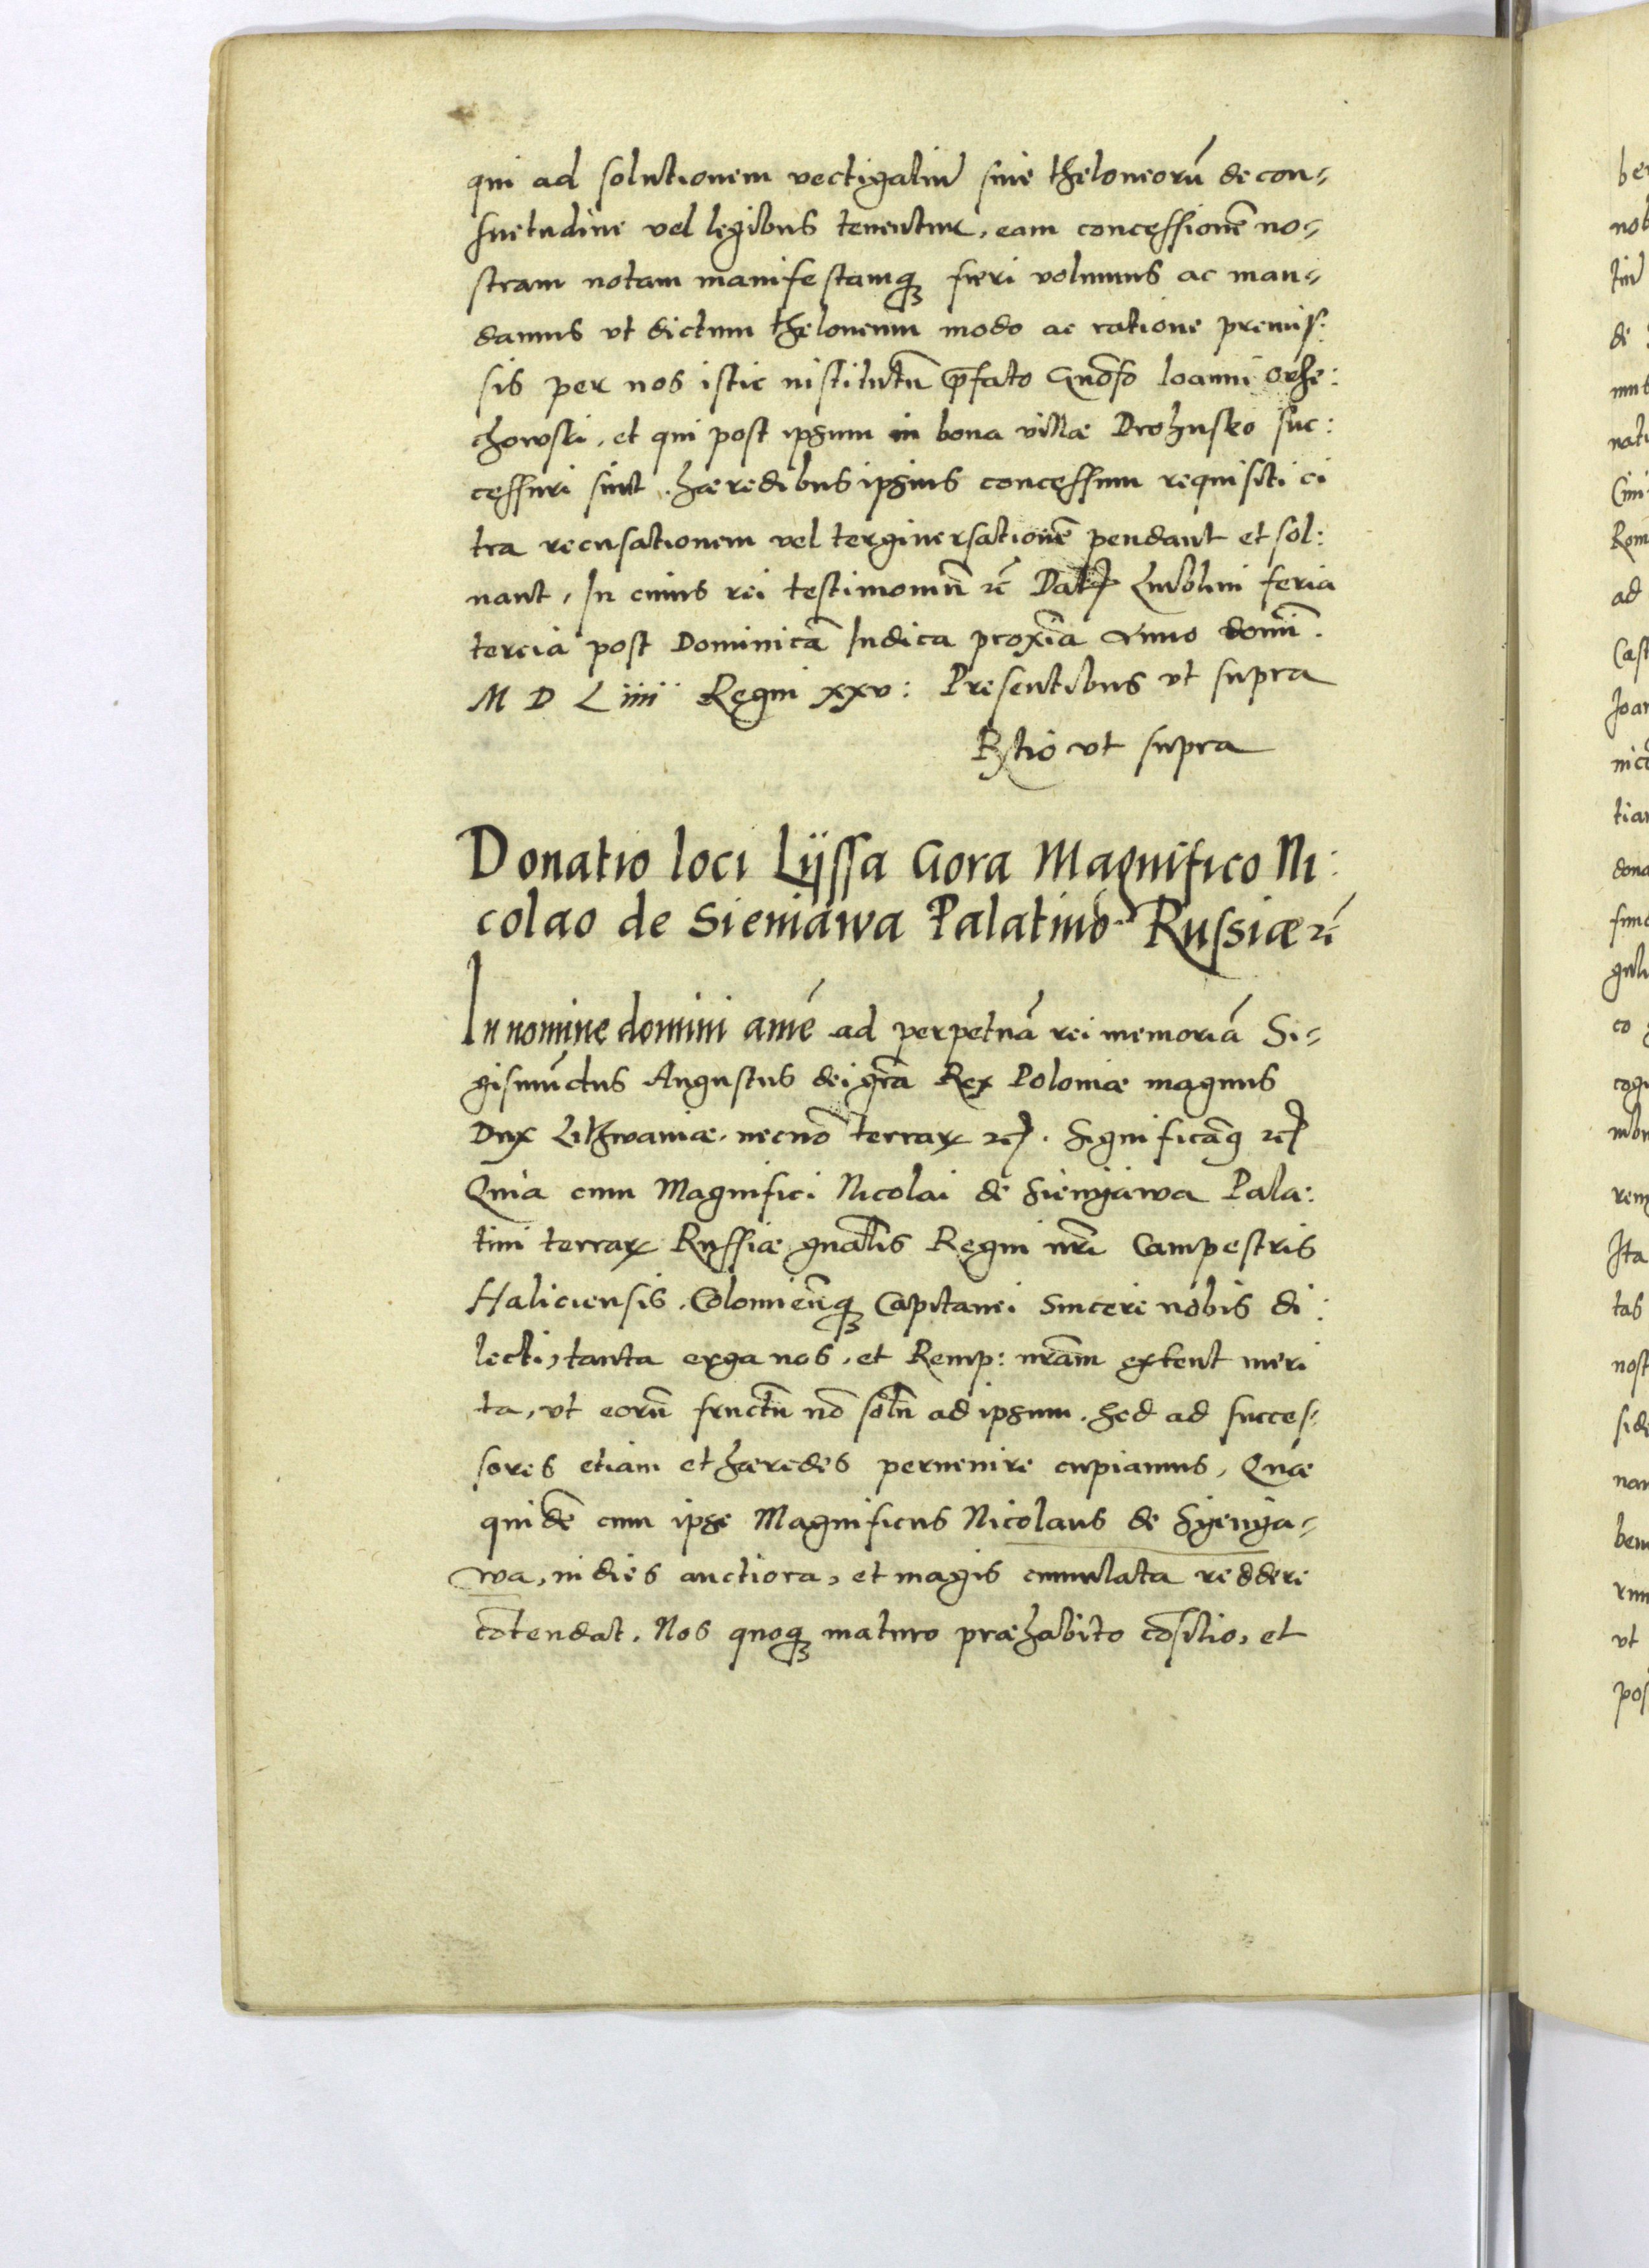 qui ad solutionem vectigaliũ siue theloneorũ de con-
suetudine vel legibus tenentur, eam concessionẽ no-
stram notam manifestamq3 fieri volumus ac man-
damus vt dictum theloneum modo ac ratione premis-
sis per nos istic institutũ p̃fato Gñoso Ioanni Orze:
chowski, et qui post ipsum in bona villæ Drohusko suc:
cessuri sunt hæredibus ipsius concessum requisiti ci
tra recusationem vel tergiuersationẽ pendant et sol:
uant, In cuius rei testimoniũ ꝛc̃ Datꝭ Lublini feria
tercia post Dominicã Iudica proxĩa Anno domĩ.
M D L iiii Regni xxv: Presentibus vt supra
Rҫtio vt supra
Donatio loci Lÿssa Gora Magnifico Ni:
colao de Sieniawa Palatino Russiæ ꝛc̃
In nomine domini amẽ ad perpetuã rei memoriã Si-
gismũdus Augustus dei gr̃a Rex Poloniæ magnus
Dux Lithwaniæ, necnõ terrarꝝ ꝛcꝭ. Significãꝗ ꝛcꝭ
Quia cum Magnifici Nicolai de Sienÿawa Pala:
tini terrarꝝ Russiæ gñalis Regni nr̃i Campestris
Haliciensis, Colomieñq3 Capitanei Sincere nobis di:
lecti, tanta erga nos, et Remp: nr̃am extent meri
ta, vt eorũ fructũ nõ solũ ad ipsum, sed ad succes-
sores etiam et hæredes peruenire cupiamus, Quæ
quidẽ cum ipse Magnificus Nicolaus de Syenÿa-
wa, in dies auctiora, et magis cumulata reddere
cõtendat, Nos quoq3 maturo præhabito cõsilio, et